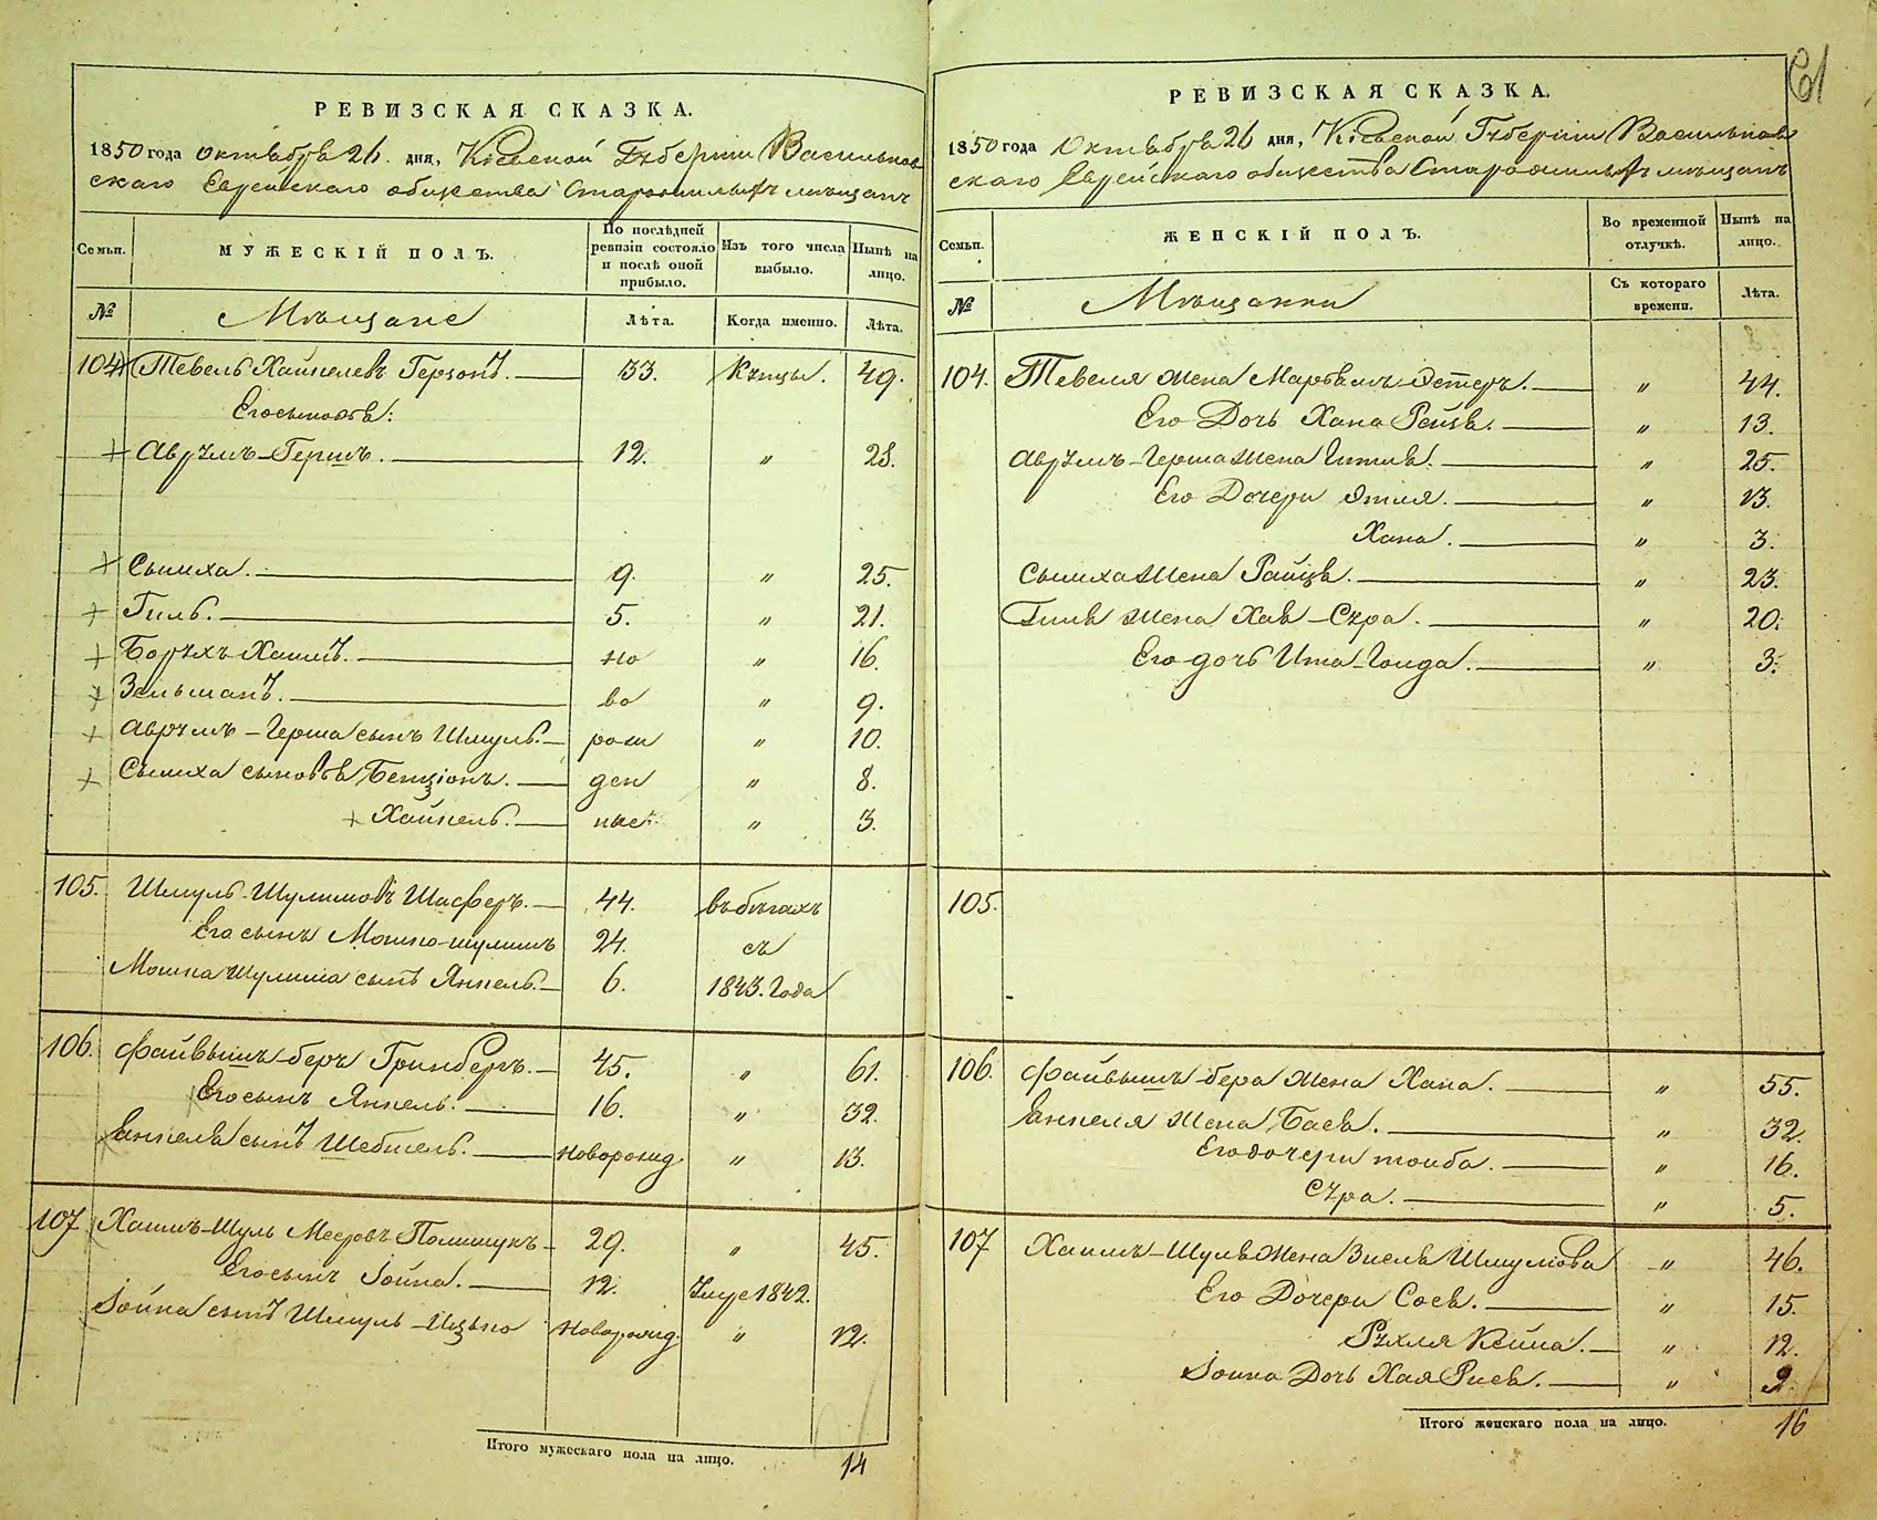 РЕВИЗСКАЯ СКАЗКА.
1850 года Октября 26. дня, Кіевской Губерніи Васильков
скаго Еврейскаго общества Старожилыхъ мѣщанъ
Семьи. МУЖЕСКІЙ ПОЛЪ. По послѣдней ревизіи состояло и послѣ оной прибыло. Изъ того числа выбыло. Нынѣ на лицо.
№ Мѣщане Лѣта. Когда именно. Лѣта.
104 Тевель Хаинелевъ 33. 49.
Его сыновья:
Аврумъ-Гершъ. 12. " 28.
Сымха. 9. " 25.
Гиль. 5. " 21.
Борухъ Хаимъ. но " 16.
Зельманъ. во " 9.
Аврумъ-Герша сынъ Шмуль. рож " 10.
Сымха сыновья Бенціонъ. ден " 8.
Хайкель. ные. " 3.
105. Шмуль Шулимовъ 44. въ бѣгахъ
Его сынъ Мошко-шулимъ 24. съ
Мошка Шулима сынъ Янкель. 6. 1843. Года
106. Файвышъ-беръ Гринбергъ. 45. " 61.
Его сынъ Янкель. 16. " 32.
Янкеля сынъ Шебшель. новорожд. " 13.
107 Хаимъ-Шуль Мееровъ Полищукъ 29. " 45.
Его сынъ Іойна. 12. 1842.
Іойна сынъ Шмуль-Ицько новорожд. " 12.
Итого мужескаго пола на лицо. 14
61
РЕВИЗСКАЯ СКАЗКА.
1850 года Октября 26 дня, Кіевской Губерніи Васильков
скаго Еврейскаго общества Старожилыхъ мѣщанъ
Семьи. ЖЕНСКІЙ ПОЛЪ. Во временной отлучкѣ. Нынѣ на лицо.
№ Мѣщанки Съ котораго времени. Лѣта.
104. Тевеля жена Марьямъ-Эстеръ. " 44.
Его Дочь Хана Рейзя. " 13.
Аврумъ-Герша жена Гитля. " 25.
Его Дочери Этля. " 13.
Хана. " 3.
Сымха жена Райзя. " 23.
Гиля жена Хая-Сура. " 20.
Его дочь Ита-Гольда. " 3.
105.
106. Файвышъ-бера жена Хана. " 55.
Янкеля жена Бася. " 32.
Его дочери тоиба. " 16.
Сура. " 5.
107 Хаимъ-Шуля жена Зисля Шмулiова " 46.
Его Дочери Сося. " 15.
Рухля Кейла. " 12.
Іойна Дочь Хая Рися. " 9.
Итого женскаго пола на лицо. 16